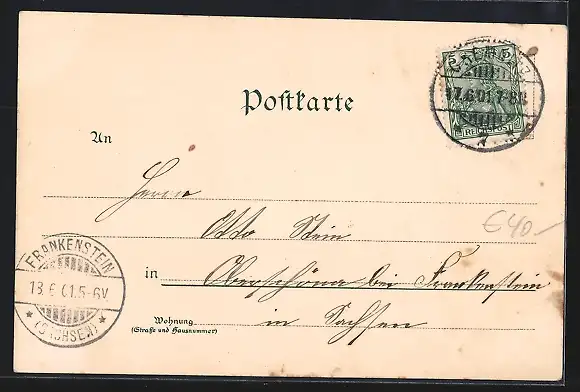 5 5
REICHSPOST
17.6.01.7-8N.
Postkarte
An
Herrn
Otto Stein
640.-
in Oberschöna bei Frankenstein
in Sachsen
Wohnung
(Straße und Hausnummer)
FRANKENSTEIN
18.6.01.5-6V.
* (SACHSEN) *